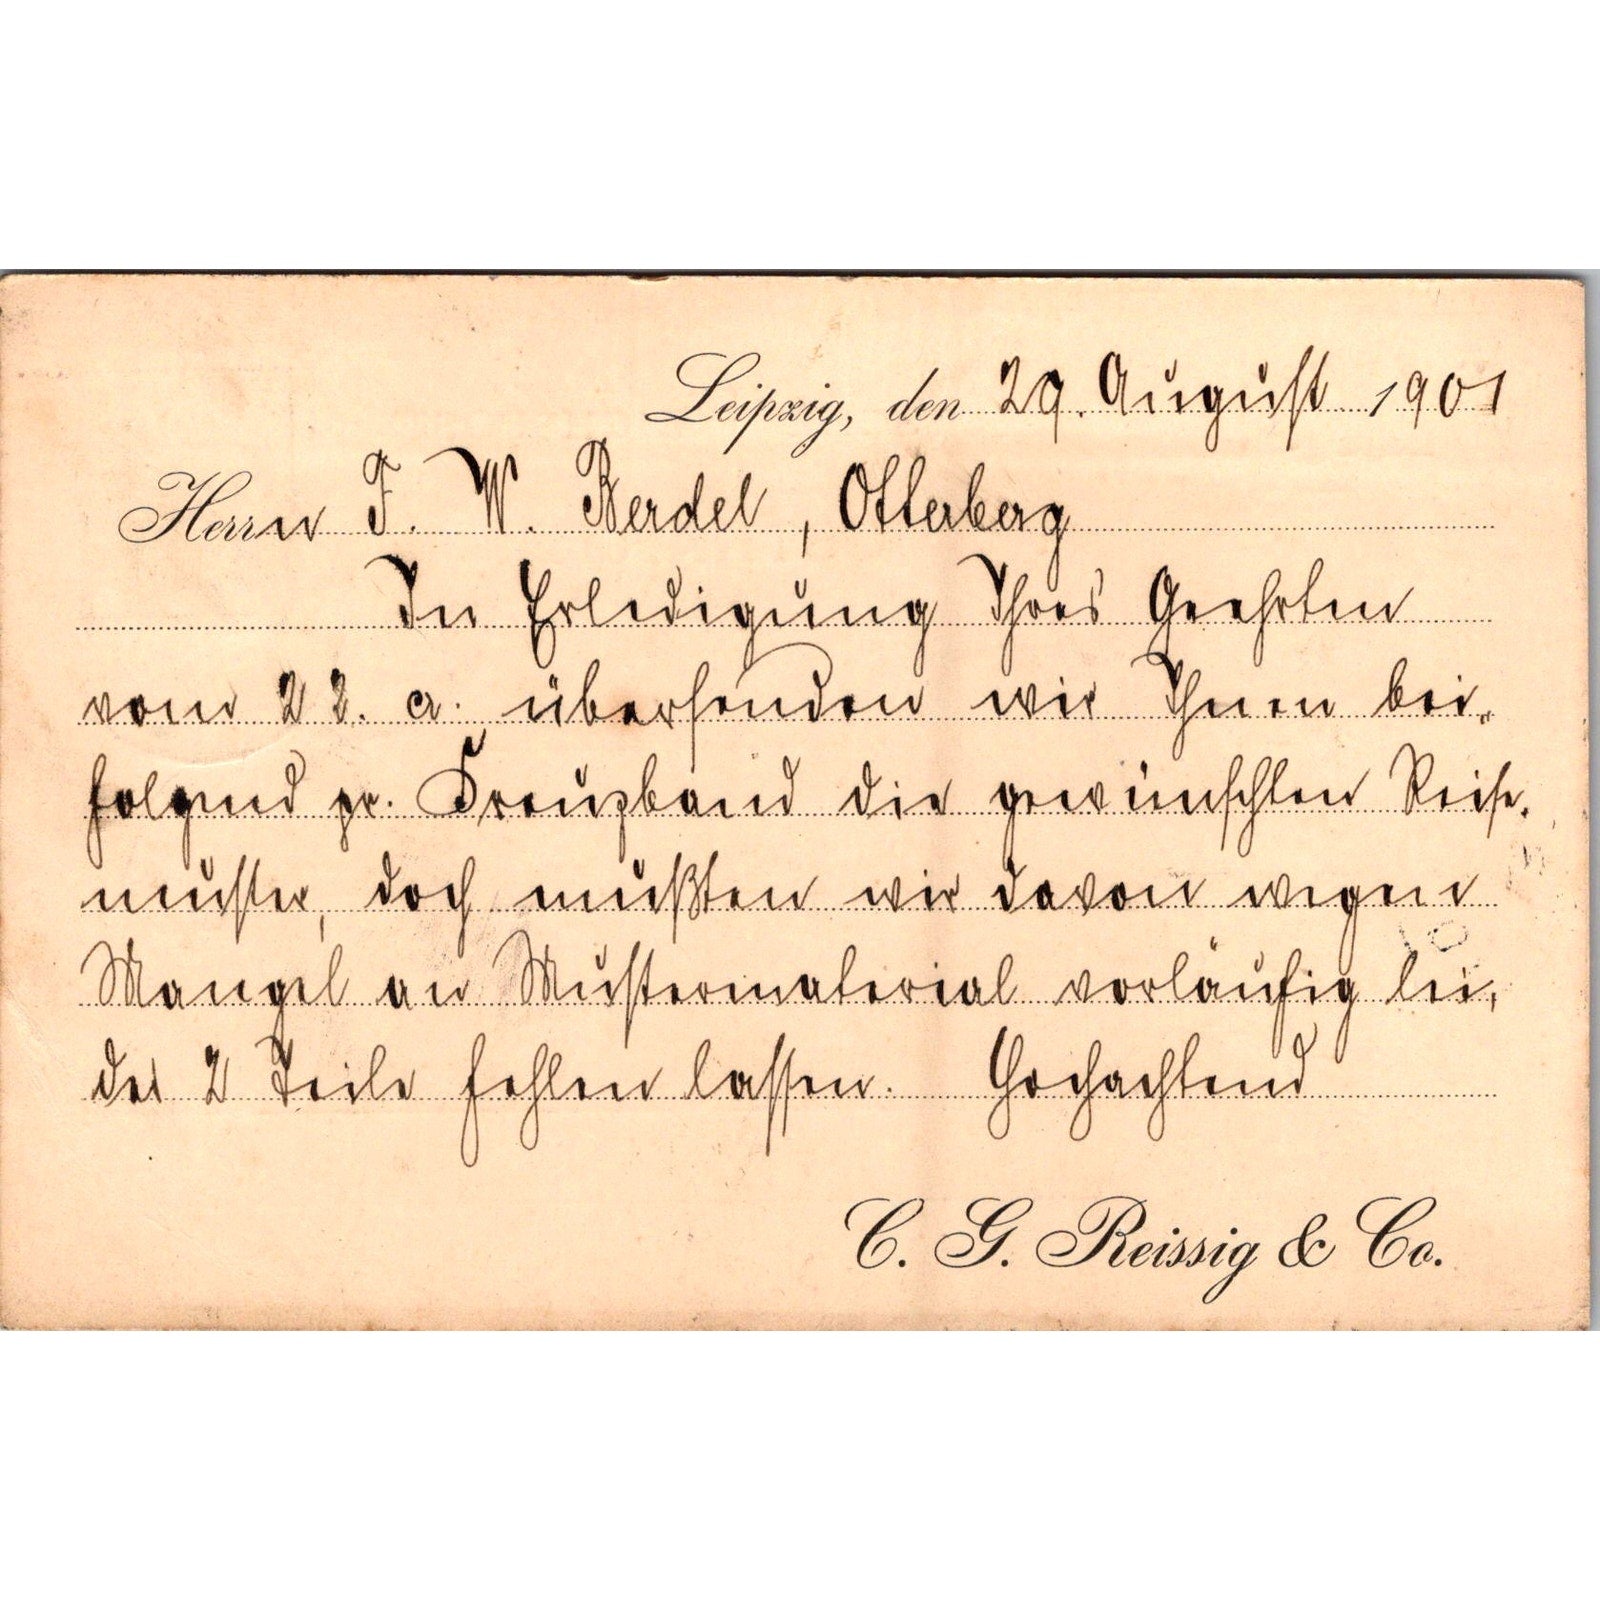 Leipzig, den 29. August 1901
Herrn F. W. Berdel, Otterberg
In Erledigung Ihres Geehrten
vom 22. a. übersenden wir Ihnen bei-
folgend pr. Kreuzband die gewünschten Reise-
muster, doch mußten wir davon wegen
Mangel an Mustermaterial vorläufig lei-
der 2 Teile fehlen lassen. Hochachtend
C. G. Reissig & Co.